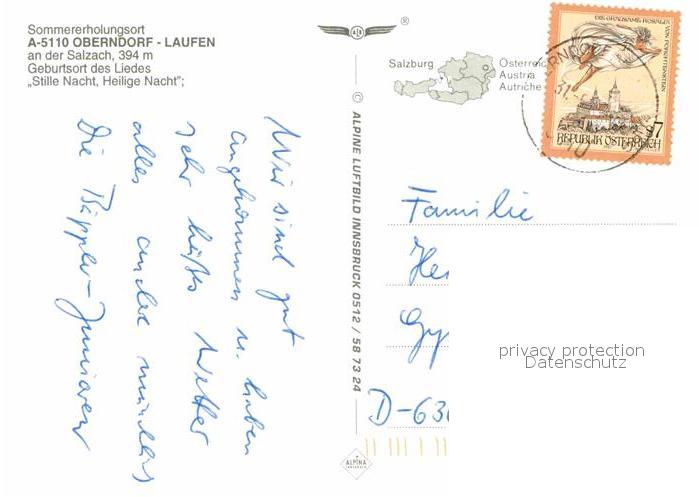 Sommererholungsort
A-5110 OBERNDORF - LAUFEN
an der Salzach, 394 m
Geburtsort des Liedes
„Stille Nacht, Heilige Nacht";
Wir sind gut
angekommen u. haben
sehr heißes Wetter
alles andere mündlich
Die Junioren
© ALPINE LUFTBILD INNSBRUCK 0512 / 58 73 24
®
Salzburg
Österreich
Austria
Autriche
DIE GRAUSAME ROSALIA VON FORCHTENSTEIN
S7
REPUBLIK ÖSTERREICH
Familie
He
Gy
D-630
privacy protection
Datenschutz
ALPINA